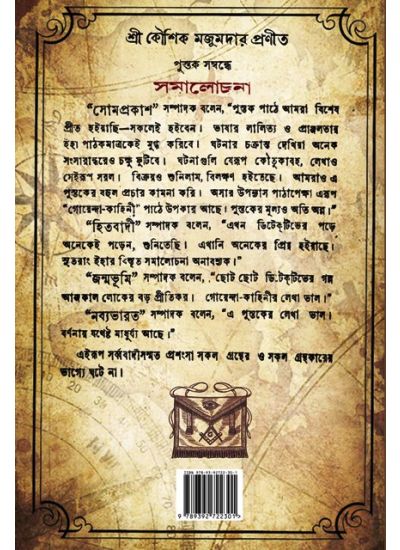 শ্রী কৌশিক মজুমদার প্রণীত
পুস্তক সম্বন্ধে
সমালোচনা
“সোমপ্রকাশ” সম্পাদক বলেন, “পুস্তক পাঠে আমরা বিশেষ
প্রীত হইয়াছি—সকলেই হইবেন। ভাষার লালিত্য ও প্রাঞ্জলতায়
ইহা পাঠকমাত্রকেই মুগ্ধ করিবে। ঘটনার চক্রান্ত দেখিয়া অনেক
সংসারান্ধেরেও চক্ষু ফুটিবে। ঘটনাগুলি যেরূপ কৌতূকাবহ, লেখাও
সেইরূপ সরল। বিক্রয়ও শুনিলাম, বিলক্ষণ হইতেছে। আমরাও এ
পুস্তকের বহুল প্রচার কামনা করি। অসার উপন্যাস পাঠাপেক্ষা এরূপ
“গোয়েন্দা-কাহিনী” পাঠে উপকার আছে। পুস্তকের মূল্যও অতি অল্প।”
“হিতবাদী” সম্পাদক বলেন, “এখন ডিটেক্‌টিভের পড়ে
অনেকেই পড়েন, শুনিতেছি। এখানি অনেকের প্রিয় হইয়াছে।
সুতরাং ইহার বিস্তৃত সমালোচনা অনাবশ্যক।”
“জন্মভূমি” সম্পাদক বলেন, “ছোট ছোট ডিটেক্‌টিভের গল্প
আজকাল লোকের বড় প্রীতিকর। গোয়েন্দা-কাহিনীর লেখা ভাল।”
“নব্যভারত” সম্পাদক বলেন, “এ পুস্তকের লেখা ভাল।
বর্ণনায় যথেষ্ট মাধুর্য্য আছে।”
এইরূপ সর্ব্ববাদীসম্মত প্রশংসা সকল গ্রন্থের ও সকল গ্রন্থকারের
ভাগ্যে ঘটে না।
G
ISBN 978-93-92722-30-1
9 789392 722301